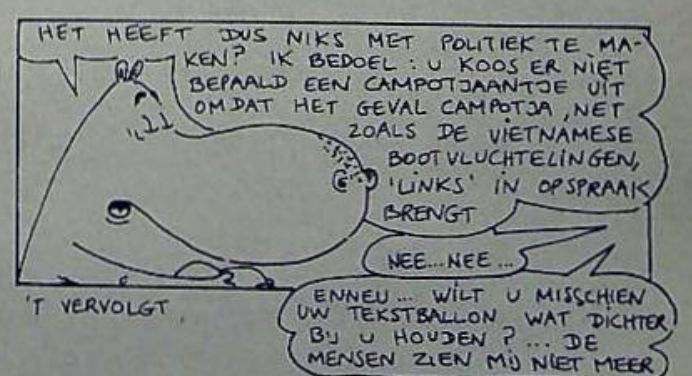 HET HEEFT DUS NIKS MET POLITIEK TE MA-
KEN? IK BEDOEL: U KOOS ER NIET
BEPAALD EEN CAMPOTJAANTJE UIT
OMDAT HET GEVAL CAMPOTJA, NET
ZOALS DE VIETNAMESE
BOOTVLUCHTELINGEN,
'LINKS' IN OPSPRAAK
BRENGT
NEE...NEE...
ENNEU... WILT U MISSCHIEN
UW TEKSTBALLON WAT DICHTER
BIJ U HOUDEN?... DE
MENSEN ZIEN MIJ NIET MEER
'T VERVOLGT.